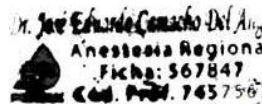 Dr. José Eduardo Camacho Del Ang
Anestesia Regiona
Ficha: 567847
Céd. Prof. 765756